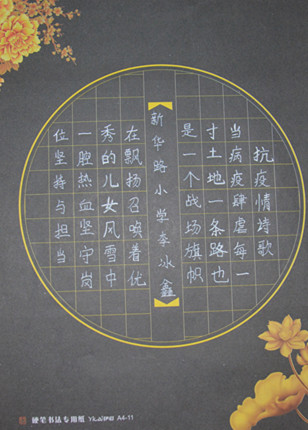 抗疫情诗歌
当病疫肆虐每一
寸土地一条路也
是一个战场旗帜
新华路小学李冰鑫
在飘扬召唤着优
秀的儿女风雪中
一腔热血坚守岗
位坚持与担当
硬笔书法专用纸
A4-11